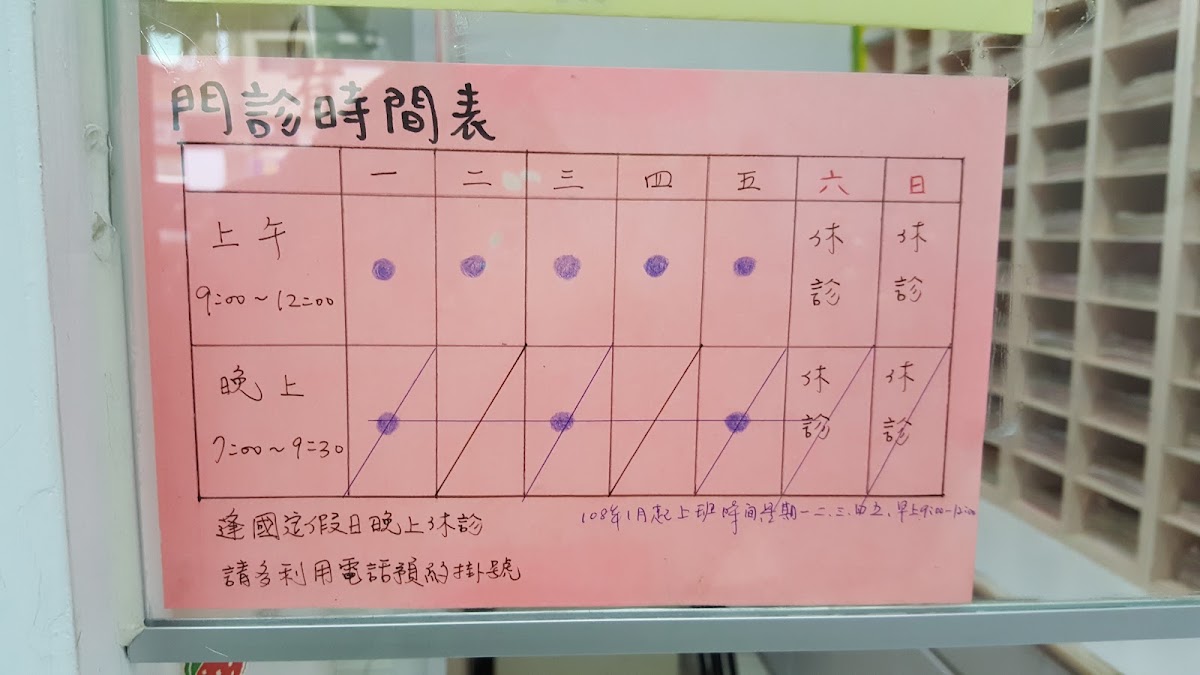 門診時間表
一 二 三 四 五 六 日
上午 9:00~12:00 ● ● ● ● ● 休診 休診
晚上 7:00~9:30 ● ● ● 休診 休診
逢國定假日晚上休診
108年1月起上班時間星期一.二.三.四.五.早上9:00-12:00
請多利用電話預約掛號